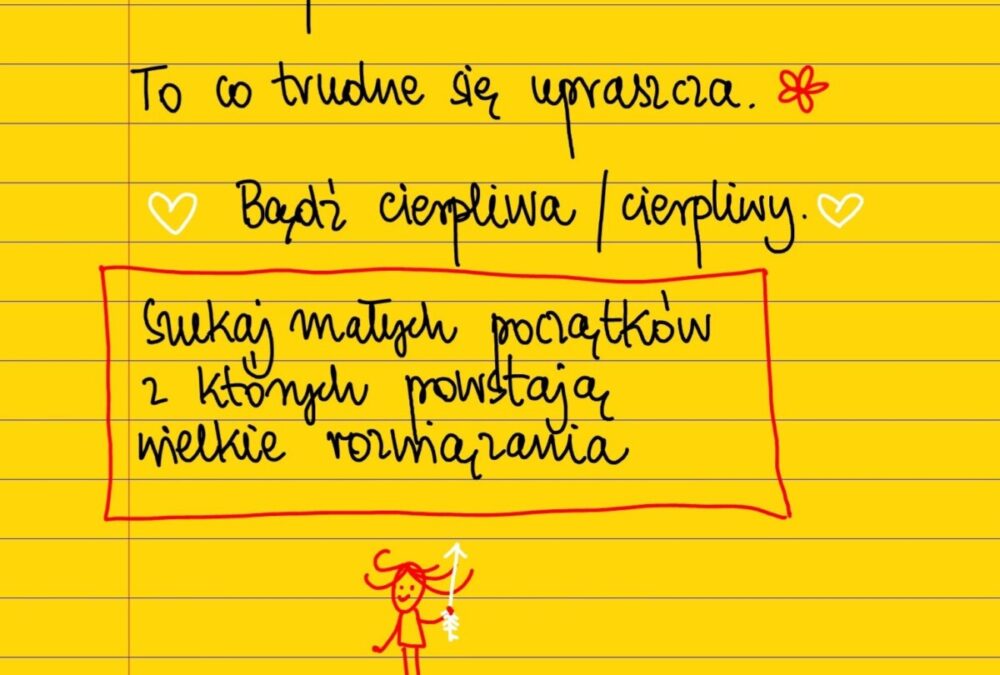 To co trudne się upraszcza.
Bądź cierpliwa / cierpliwy.
Szukaj małych początków
z których powstają
wielkie rozwiązania